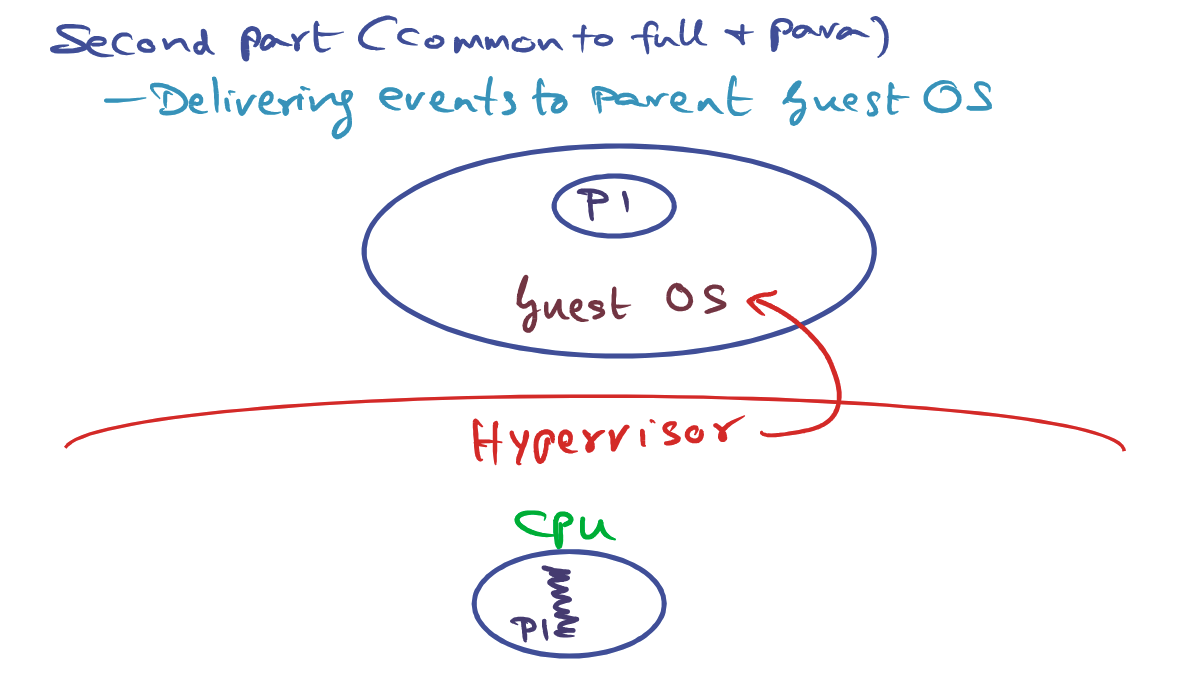 Second part (Common to full + para)
— Delivering events to parent Guest OS
P1
Guest OS
Hypervisor
CPU
P1